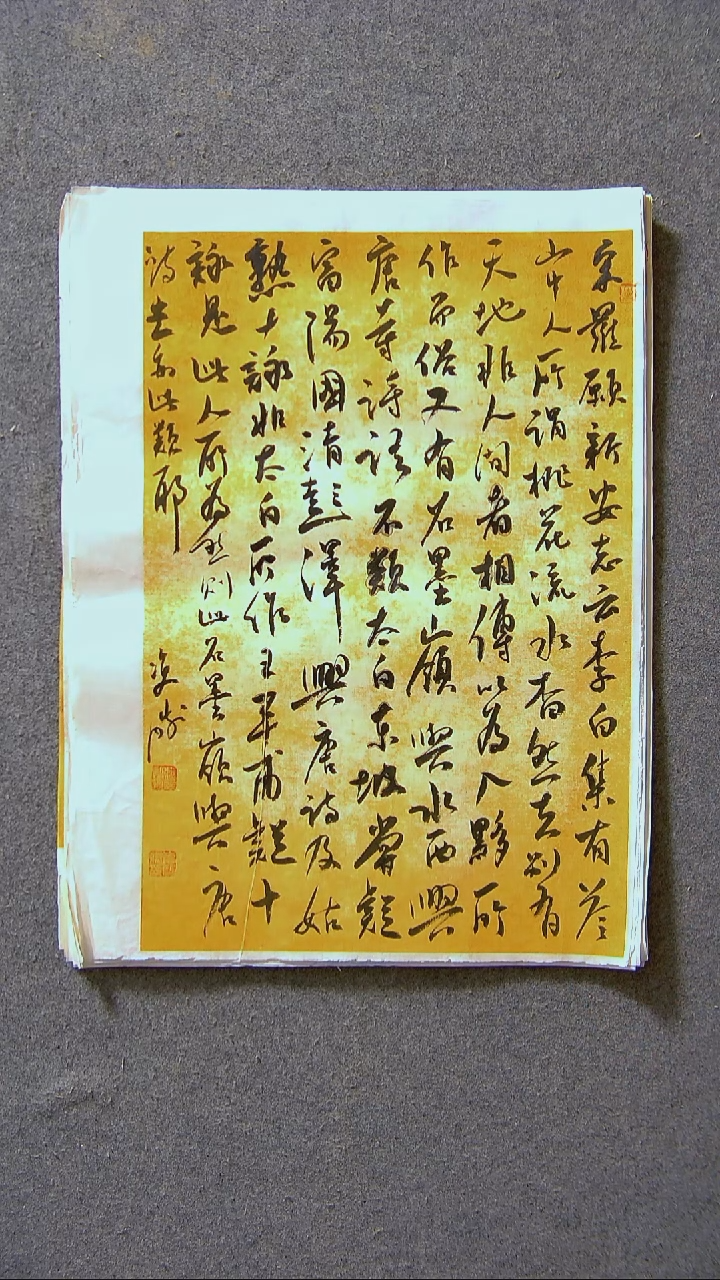 宋羅願新安志云李白集有答
山中人所謂桃花流水杳然去別有
天地非人間者相傳以為入黟所
作而俗又有石墨嶺與水西興
唐寺詩語不類太白東坡嘗疑
富陽國清彭澤興唐詩及姑
熟十詠非太白所作王平甫疑十
詠是此人所為然則此石墨嶺與唐
詩豈亦此類耶